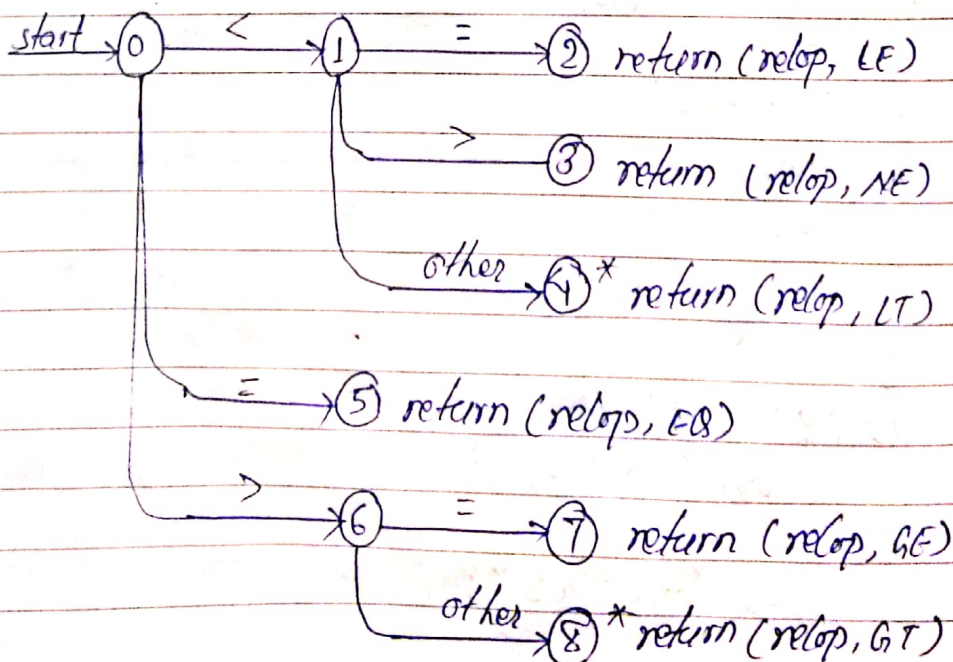 start 0 < 1 = 2 return (relop, LE)
> 3 return (relop, NE)
other 4 * return (relop, LT)
= 5 return (relop, EQ)
> 6 = 7 return (relop, GE)
other 8 * return (relop, GT)